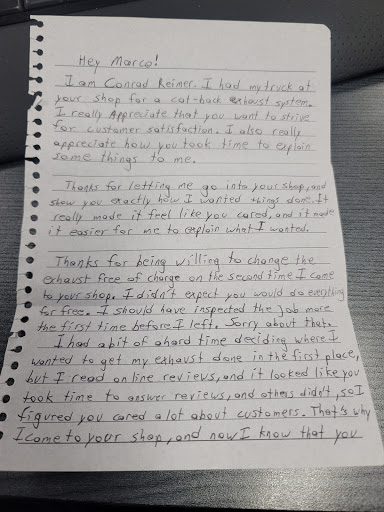 Hey Marco!
I am Conrad Reimer. I had my truck at
your shop for a cat-back exhaust system.
I really Appreciate that you want to strive
for customer satisfaction. I also really
appreciate how you took time to explain
some things to me.
Thanks for letting me go into your shop, and
show you exactly how I wanted things done. It
really made it feel like you cared, and it made
it easier for me to explain what I wanted.
Thanks for being willing to change the
exhaust free of charge on the second time I came
to your shop. I didn't expect you would do everything
for free. I should have inspected the job more
the first time before I left. Sorry about that.
I had a bit of a hard time deciding where I
wanted to get my exhaust done in the first place,
but I read online reviews, and it looked like you
took time to answer reviews, and others didn't, so I
figured you cared alot about customers. That's why
I came to your shop, and now I know that you